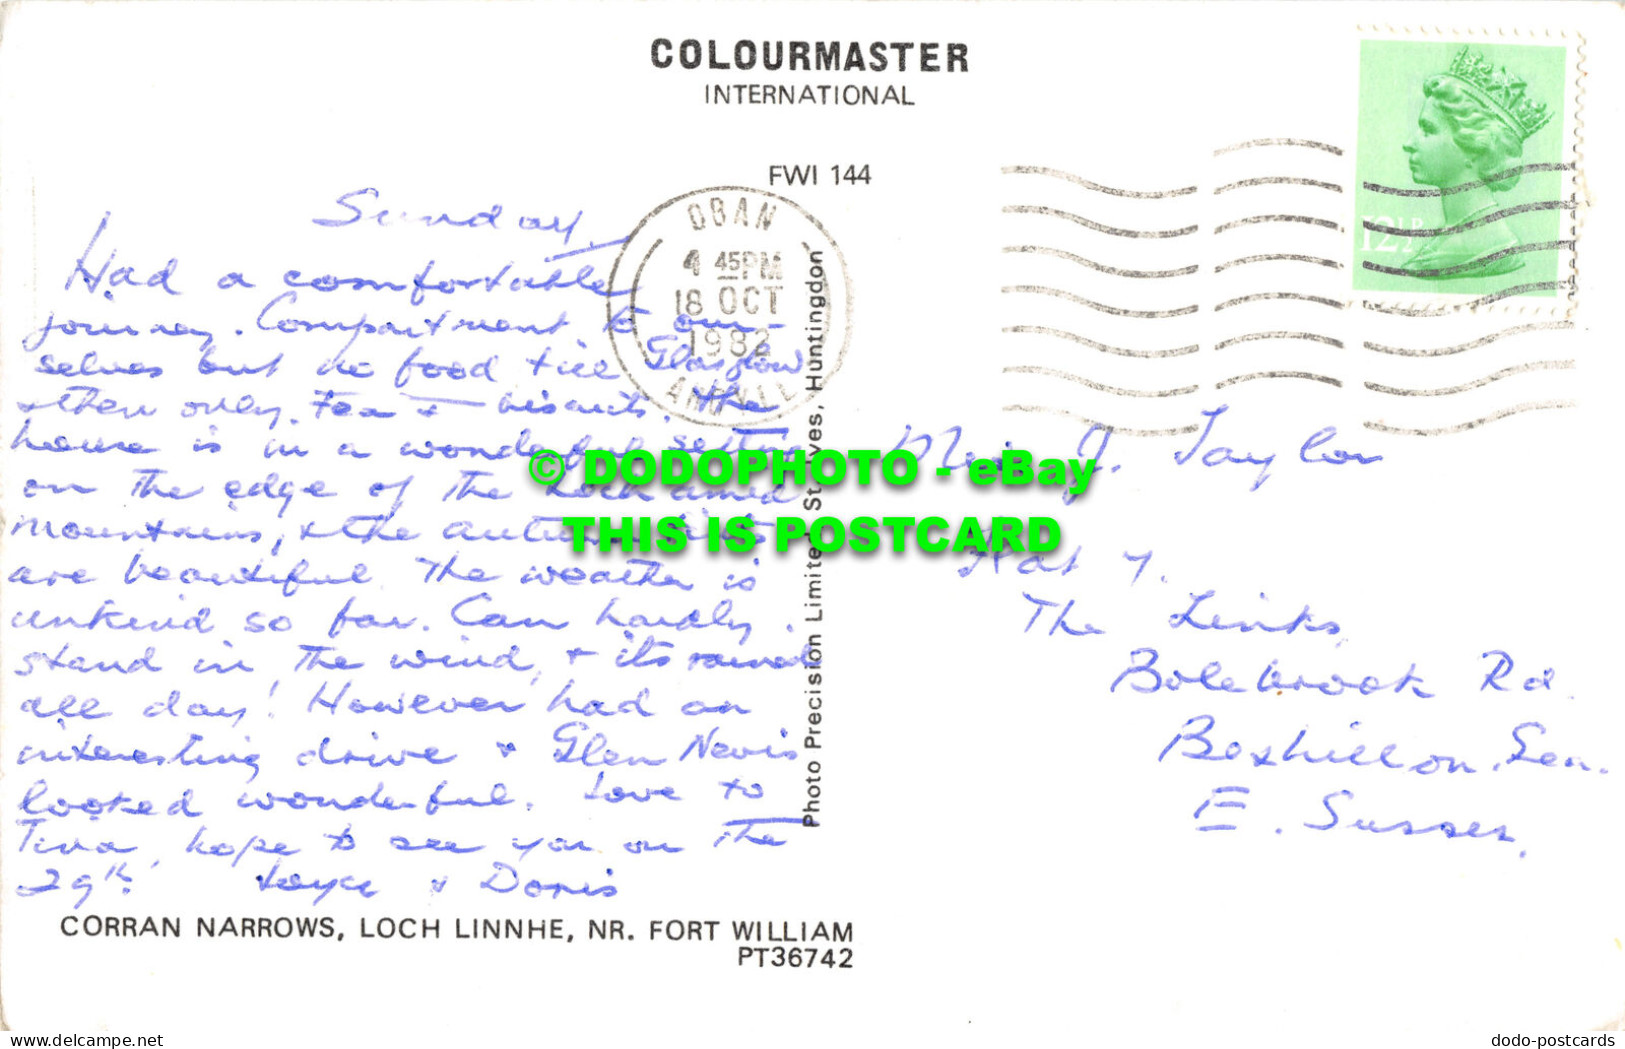 COLOURMASTER
INTERNATIONAL
FWI 144
OBAN
4 45PM
18 OCT
1982
ARGYLL
12½P
Sunday
Had a comfortable
journey. Compartment to our-
selves but no food till Glasgow
& then only tea & biscuits. The
house is in a wonderful setting
on the edge of the Loch amid
mountains, & the autumn tints
are beautiful. The weather is
unkind so far. Can hardly
stand in the wind, & its rained
all day! However had an
interesting drive & Glen Nevis
looked wonderful. Love to
Tina, hope to see you on the
29th. Joyce & Doris
Photo Precision Limited, St. Ives, Huntingdon
J. Taylor
Flat 7.
The Links,
Bolebrook Rd
Bexhill on Sea.
E. Sussex.
© DODOPHOTO - eBay
THIS IS POSTCARD
CORRAN NARROWS, LOCH LINNHE, NR. FORT WILLIAM
PT36742
www.delcampe.net
dodo-postcards